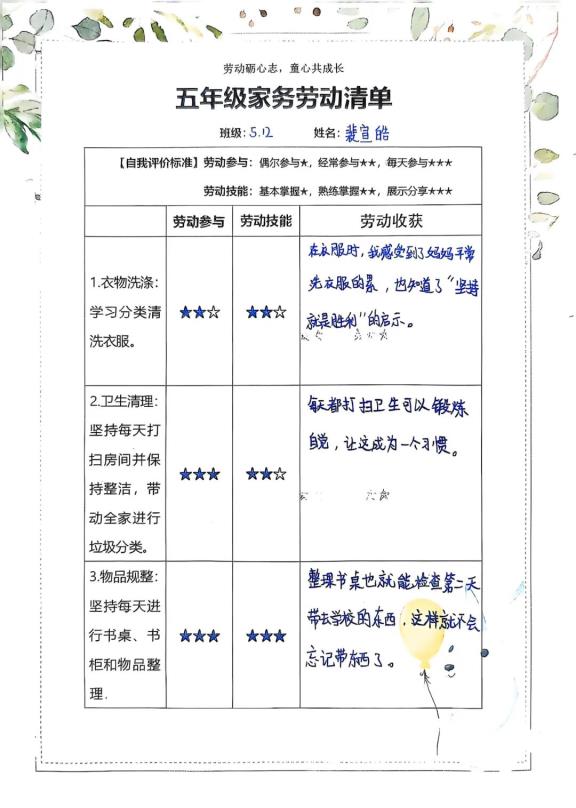 劳动砺心志，童心共成长
五年级家务劳动清单
班级：5.12 姓名：裴宣皓
【自我评价标准】劳动参与：偶尔参与★，经常参与★★，每天参与★★★
劳动技能：基本掌握★，熟练掌握★★，展示分享★★★
劳动参与 劳动技能 劳动收获
1.衣物洗涤：
学习分类清
洗衣服。
★★☆ ★★☆
在衣服时，我感受到了妈妈平常
洗衣服的累，也知道了“坚持
就是胜利”的启示。
2.卫生清理：
坚持每天打
扫房间并保
持整洁，带
动全家进行
垃圾分类。
★★★ ★★☆
每天都打扫卫生可以锻炼
自觉，让这成为一个习惯。
3.物品规整：
坚持每天进
行书桌、书
柜和物品整
理.
★★★ ★★★
整理书桌也就能检查第二天
带去学校的东西，这样就不会
忘记带东西了。